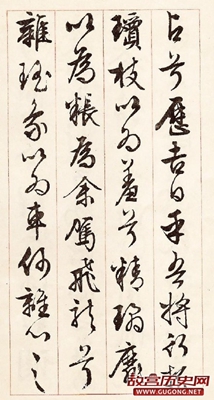 占兮歷吉日乎吾將行折
瓊枝以為羞兮精瓊爢
以為粻為余駕飛龍兮
雜瑤象以為車何離心之
故宫历史网